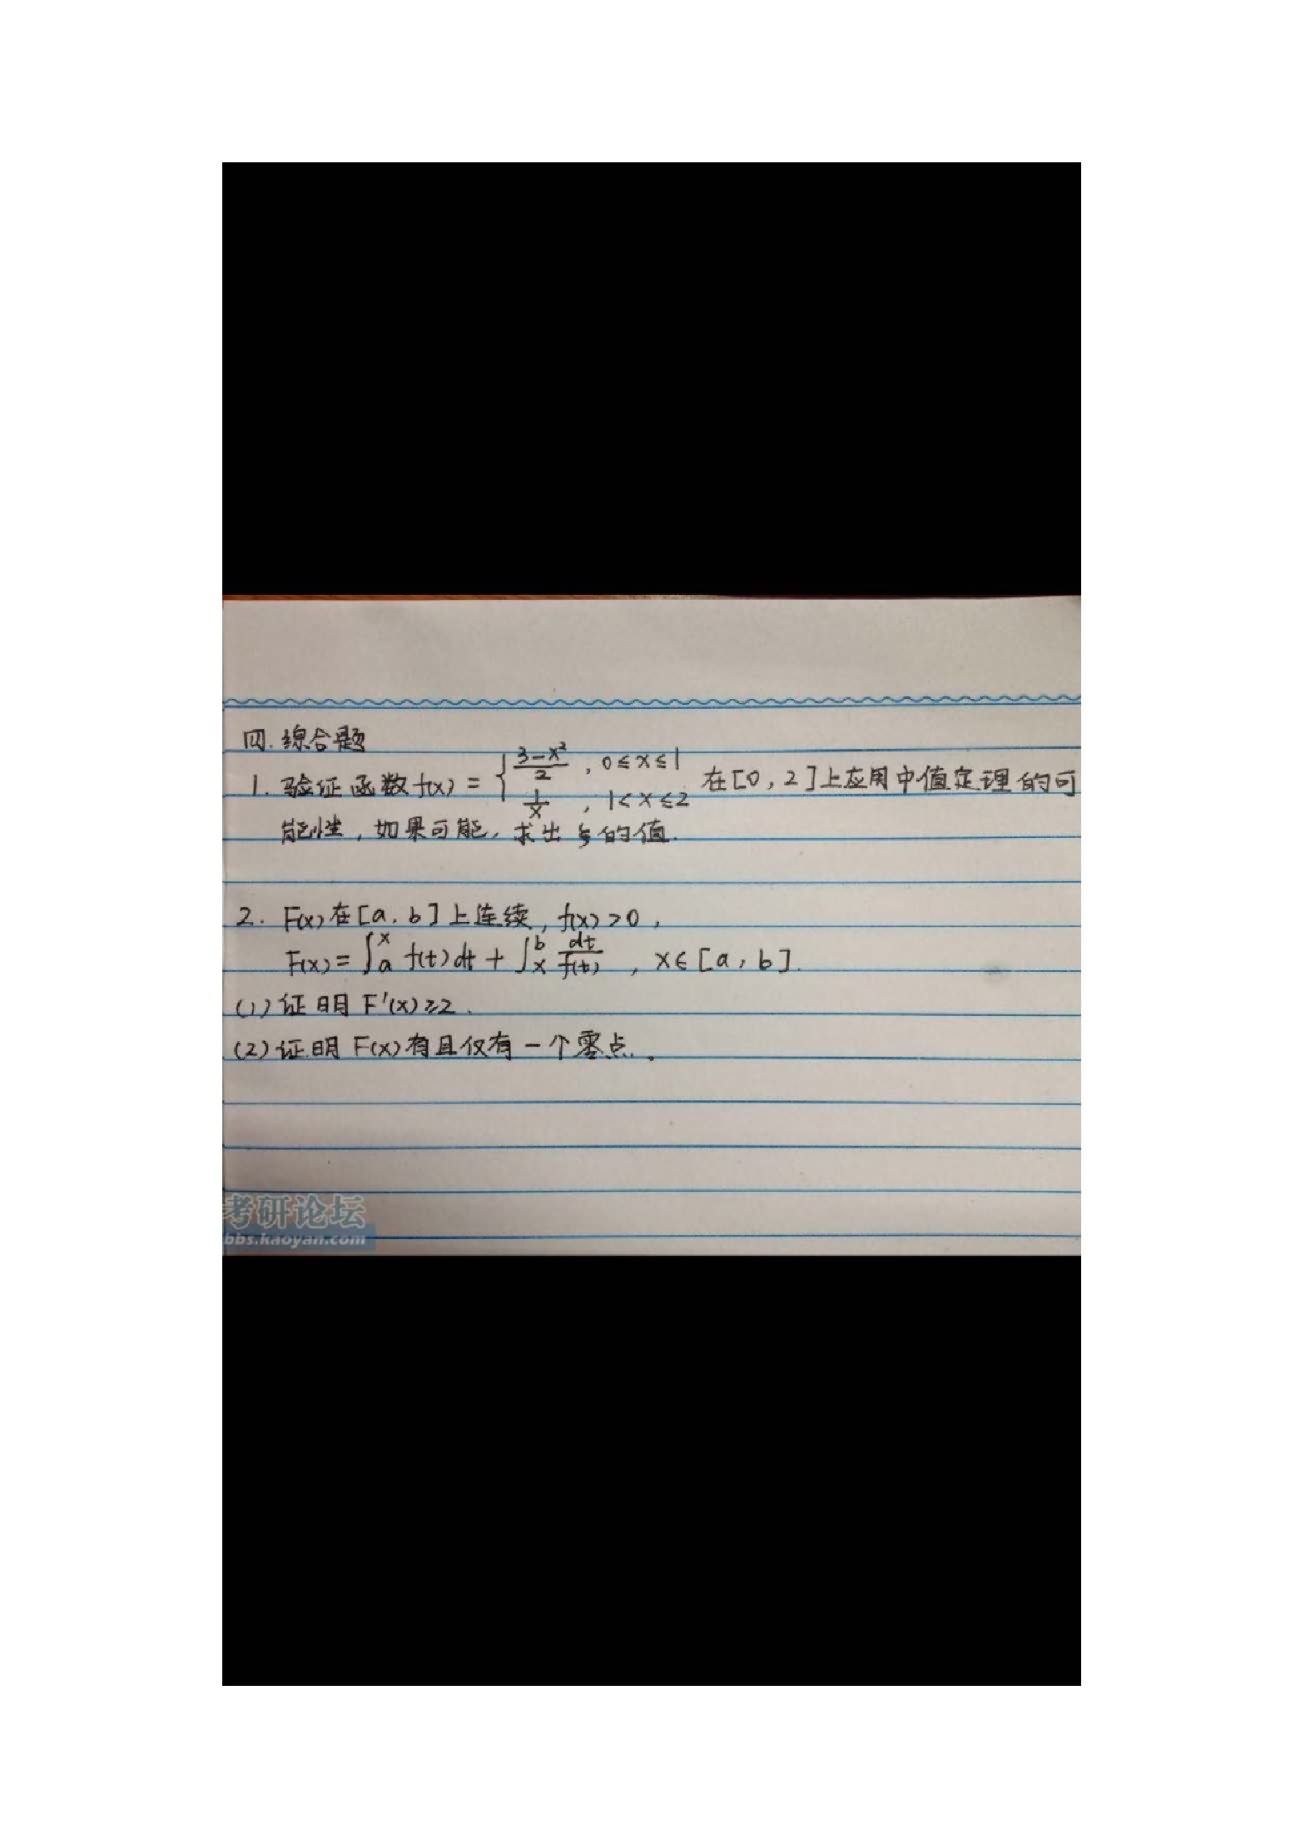 四.综合题
1. 验证函数f(x) = { (3-x²)/2 , 0≤x≤1 ; 1/x , 1<x≤2 在[0,2]上应用中值定理的可
能性,如果可能,求出ξ的值.
2. F(x)在[a,b]上连续,f(x)>0,
F(x)=∫_a^x f(t)dt + ∫_x^b dt/f(t) , x∈[a,b].
(1)证明F'(x)≥2.
(2)证明F(x)有且仅有一个零点.
考研论坛
bbs.kaoyan.com